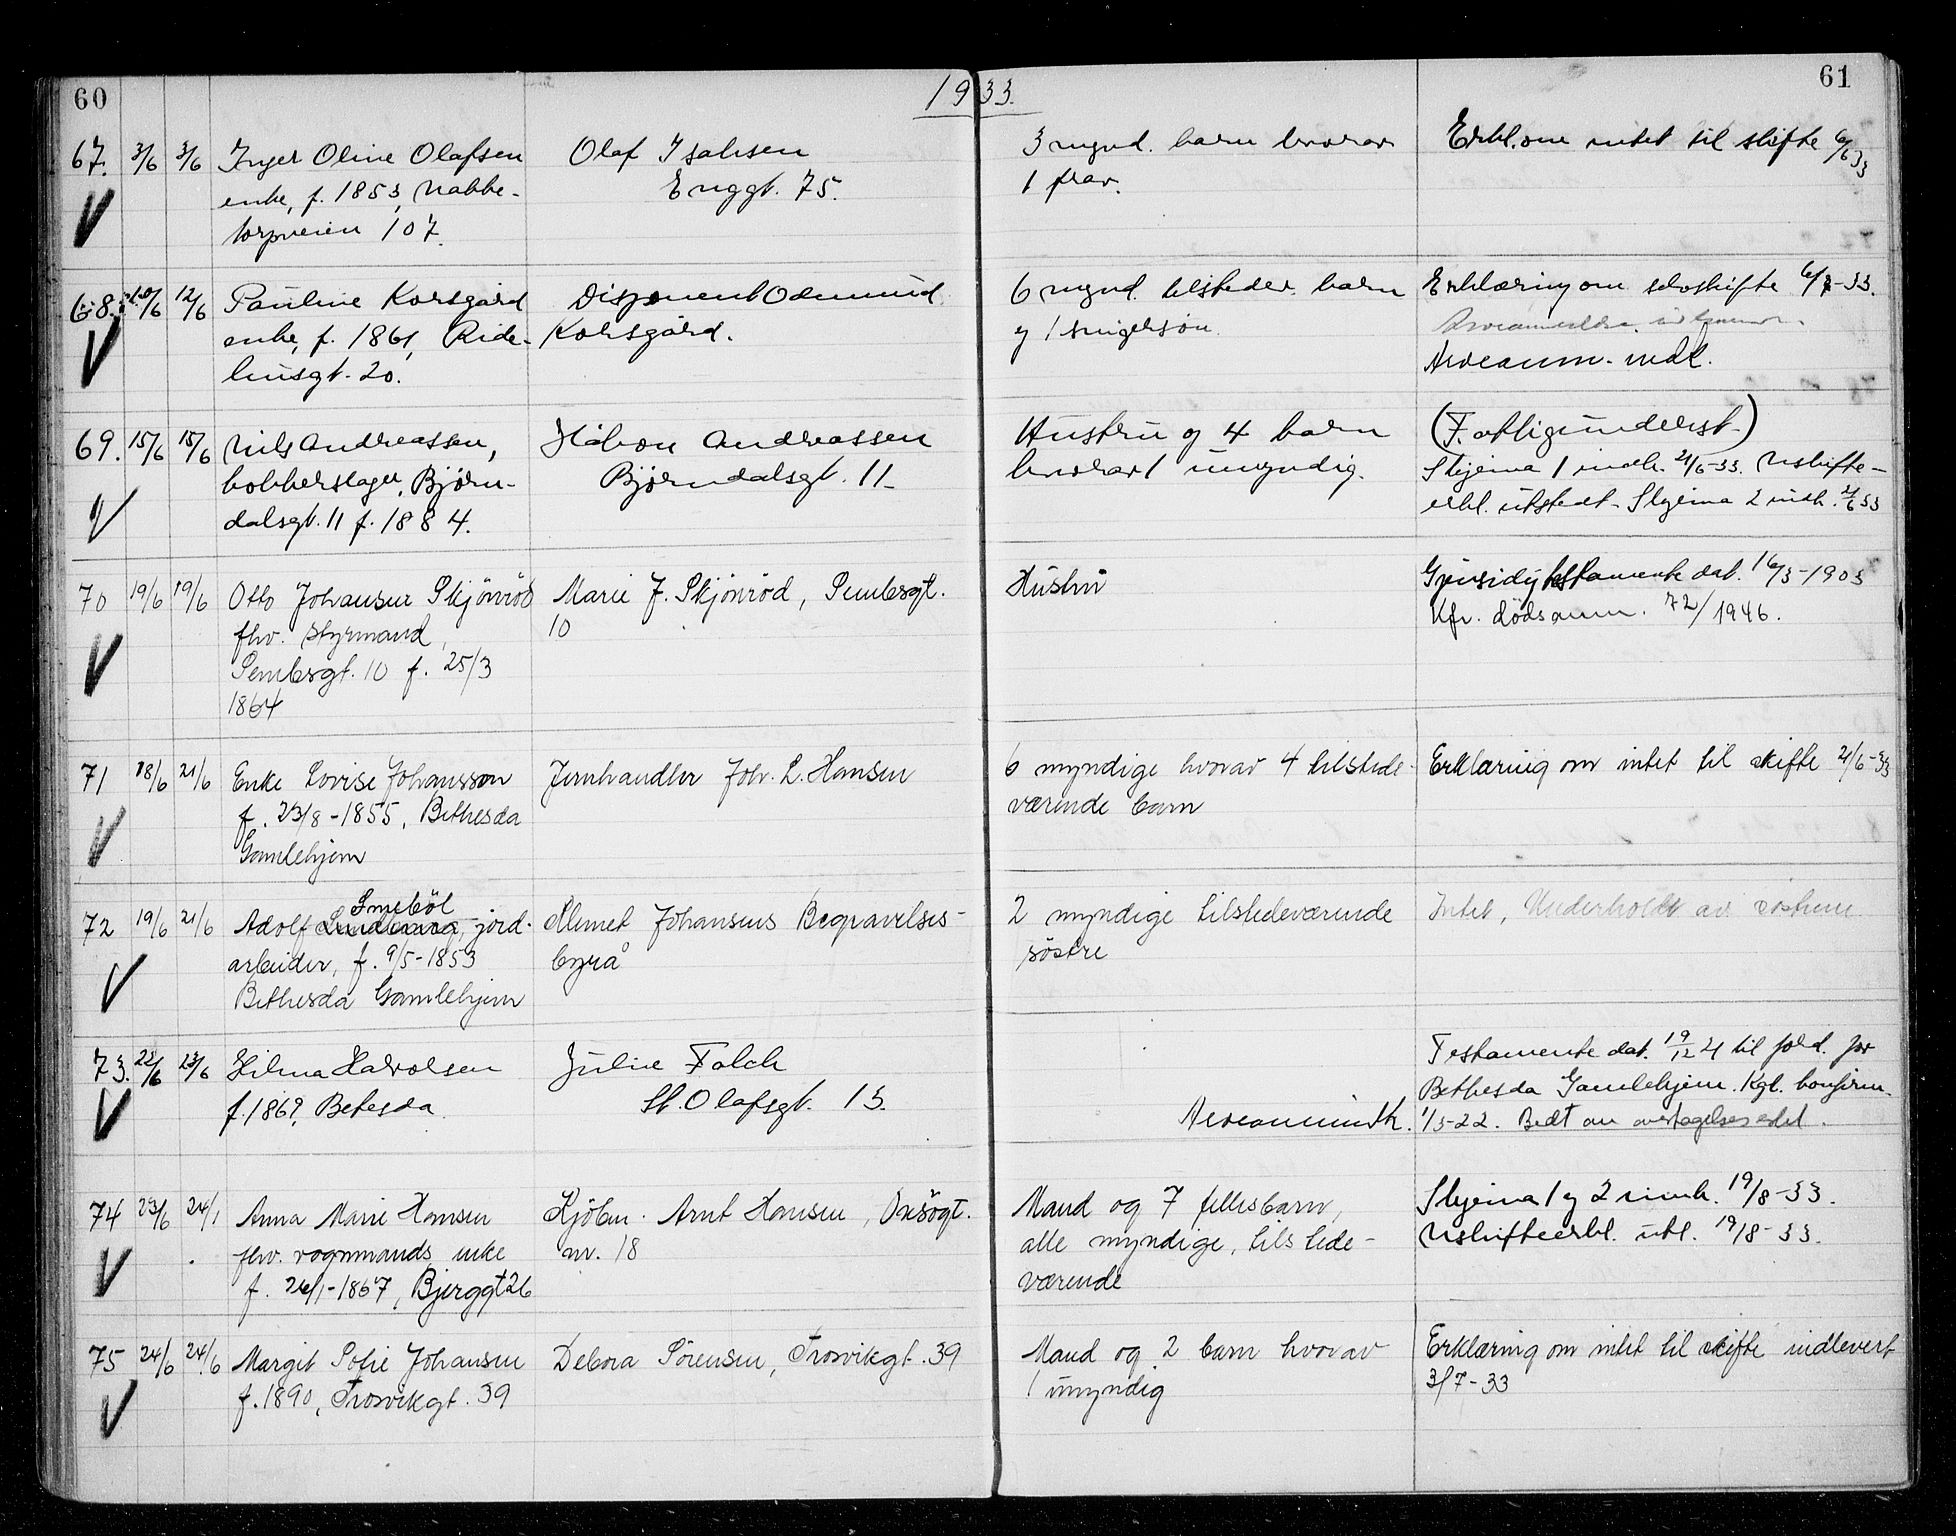 60
1933.
61
67. 3/6 3/6 Inger Oline Olafsen
enke, f. 1853, Nabbe-
torpveien 107.
Olaf Isaksen
Enggt. 75.
3 mynd. barn hvorav
1 frav.
Erkl. om intet til skifte 6/6 33
68. 10/6 12/6 Pauline Korsgård
enke, f. 1861, Ride-
husgt. 20.
Disponent Odmund
Korsgård.
6 mynd. tilsteder. barn
og 1 svigersøn.
Erklæring om selvskifte 6/7-33.
Arveanm. indk.
69. 15/6 15/6 Nils Andreassen,
kobberslager, Bjørn-
dalsgt. 11 f. 1884.
Håkon Andreassen
Bjørndalsgt. 11-
Hustru og 4 barn
hvorav 1 umyndig.
(F. attigunderst.)
Skjema 1 indk. 21/6-33. Uskifte-
erkl. utstedt. Skjema 2 indk. 21/6 33
70 19/6 19/6 Otto Johansen Skjönröd
fhv. styrmand,
Sembsgt. 10 f. 25/3
1864
Marie J. Skjönröd, Sembsgt.
10
Hustru
Gjensidig testamente dat. 16/3-1903
Kfr. dödsanm. 72/1946.
71 18/6 21/6 Enke Lovise Johansson
f. 23/8-1855, Bethesda
Gamlehjem
Jernhandler Joh. L. Hansen
6 myndige hvorav 4 tilstede-
værende barn
Erklæring om intet til skifte 21/6-33
Smeböl
72 19/6 21/6 Adolf, jord-
arbeider, f. 9/5-1853
Bethesda Gamlehjem
Klemet Johansens Begravelses-
byrå
2 myndige tilstedeværende
söstre
Intet, Underholdt av söstrene
73. 22/6 23/6 Hilma Halvolsen
f. 1869, Betesda.
Julie Falch
St. Olafsgt. 13.
Arveanm indk.
Testamente dat. 19/12 21 til ford. for
Bethesda Gamlehjem. Kgl. konfirm.
1/3-22. Bedt om overtagelsesedl.
74 23/6 24/1 Anna Marie Hansen
fhv. vognmands enke
f. 26/1-1867, Bjerggt 26
Kjöbm. Arnt Hansen, Onsögt.
nr. 18
Mand og 7 fellesbarn,
alle myndige, tilstede-
værende
Skjema 1 og 2 innk. 19/8-33.
Uskifteerkl. utl. 19/8-33.
75 24/6 24/6 Margit Sofie Johansen
f. 1890, Trosvikgt. 39
Debora Sörensen, Trosvikgt. 39
Mand og 2 barn hvorav
1 umyndig
Erklæring om intet til skifte indlevert
3/7-33